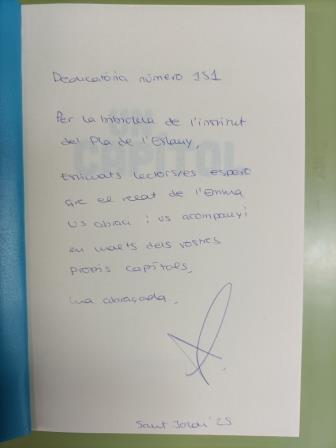 Dedicatòria número 151
Per la biblioteca de l'institut
del Pla de l'Estany,
Estimats lectors/es espero
que el relat de l'Emma
us abraci i us acompanyi
en molts dels vostres
propis capítols,
Una abraçada,
Sant Jordi '25
UN
CAPÍTOL